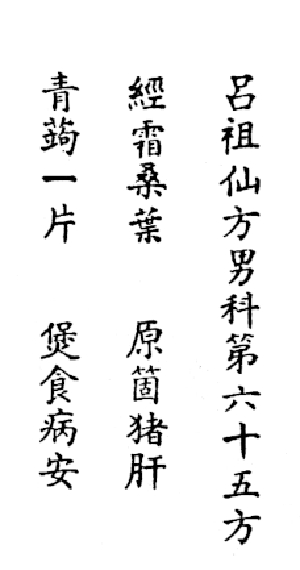 呂祖仙方男科第六十五方
經霜桑葉　原箇猪肝
青蒟一片　煲食病安